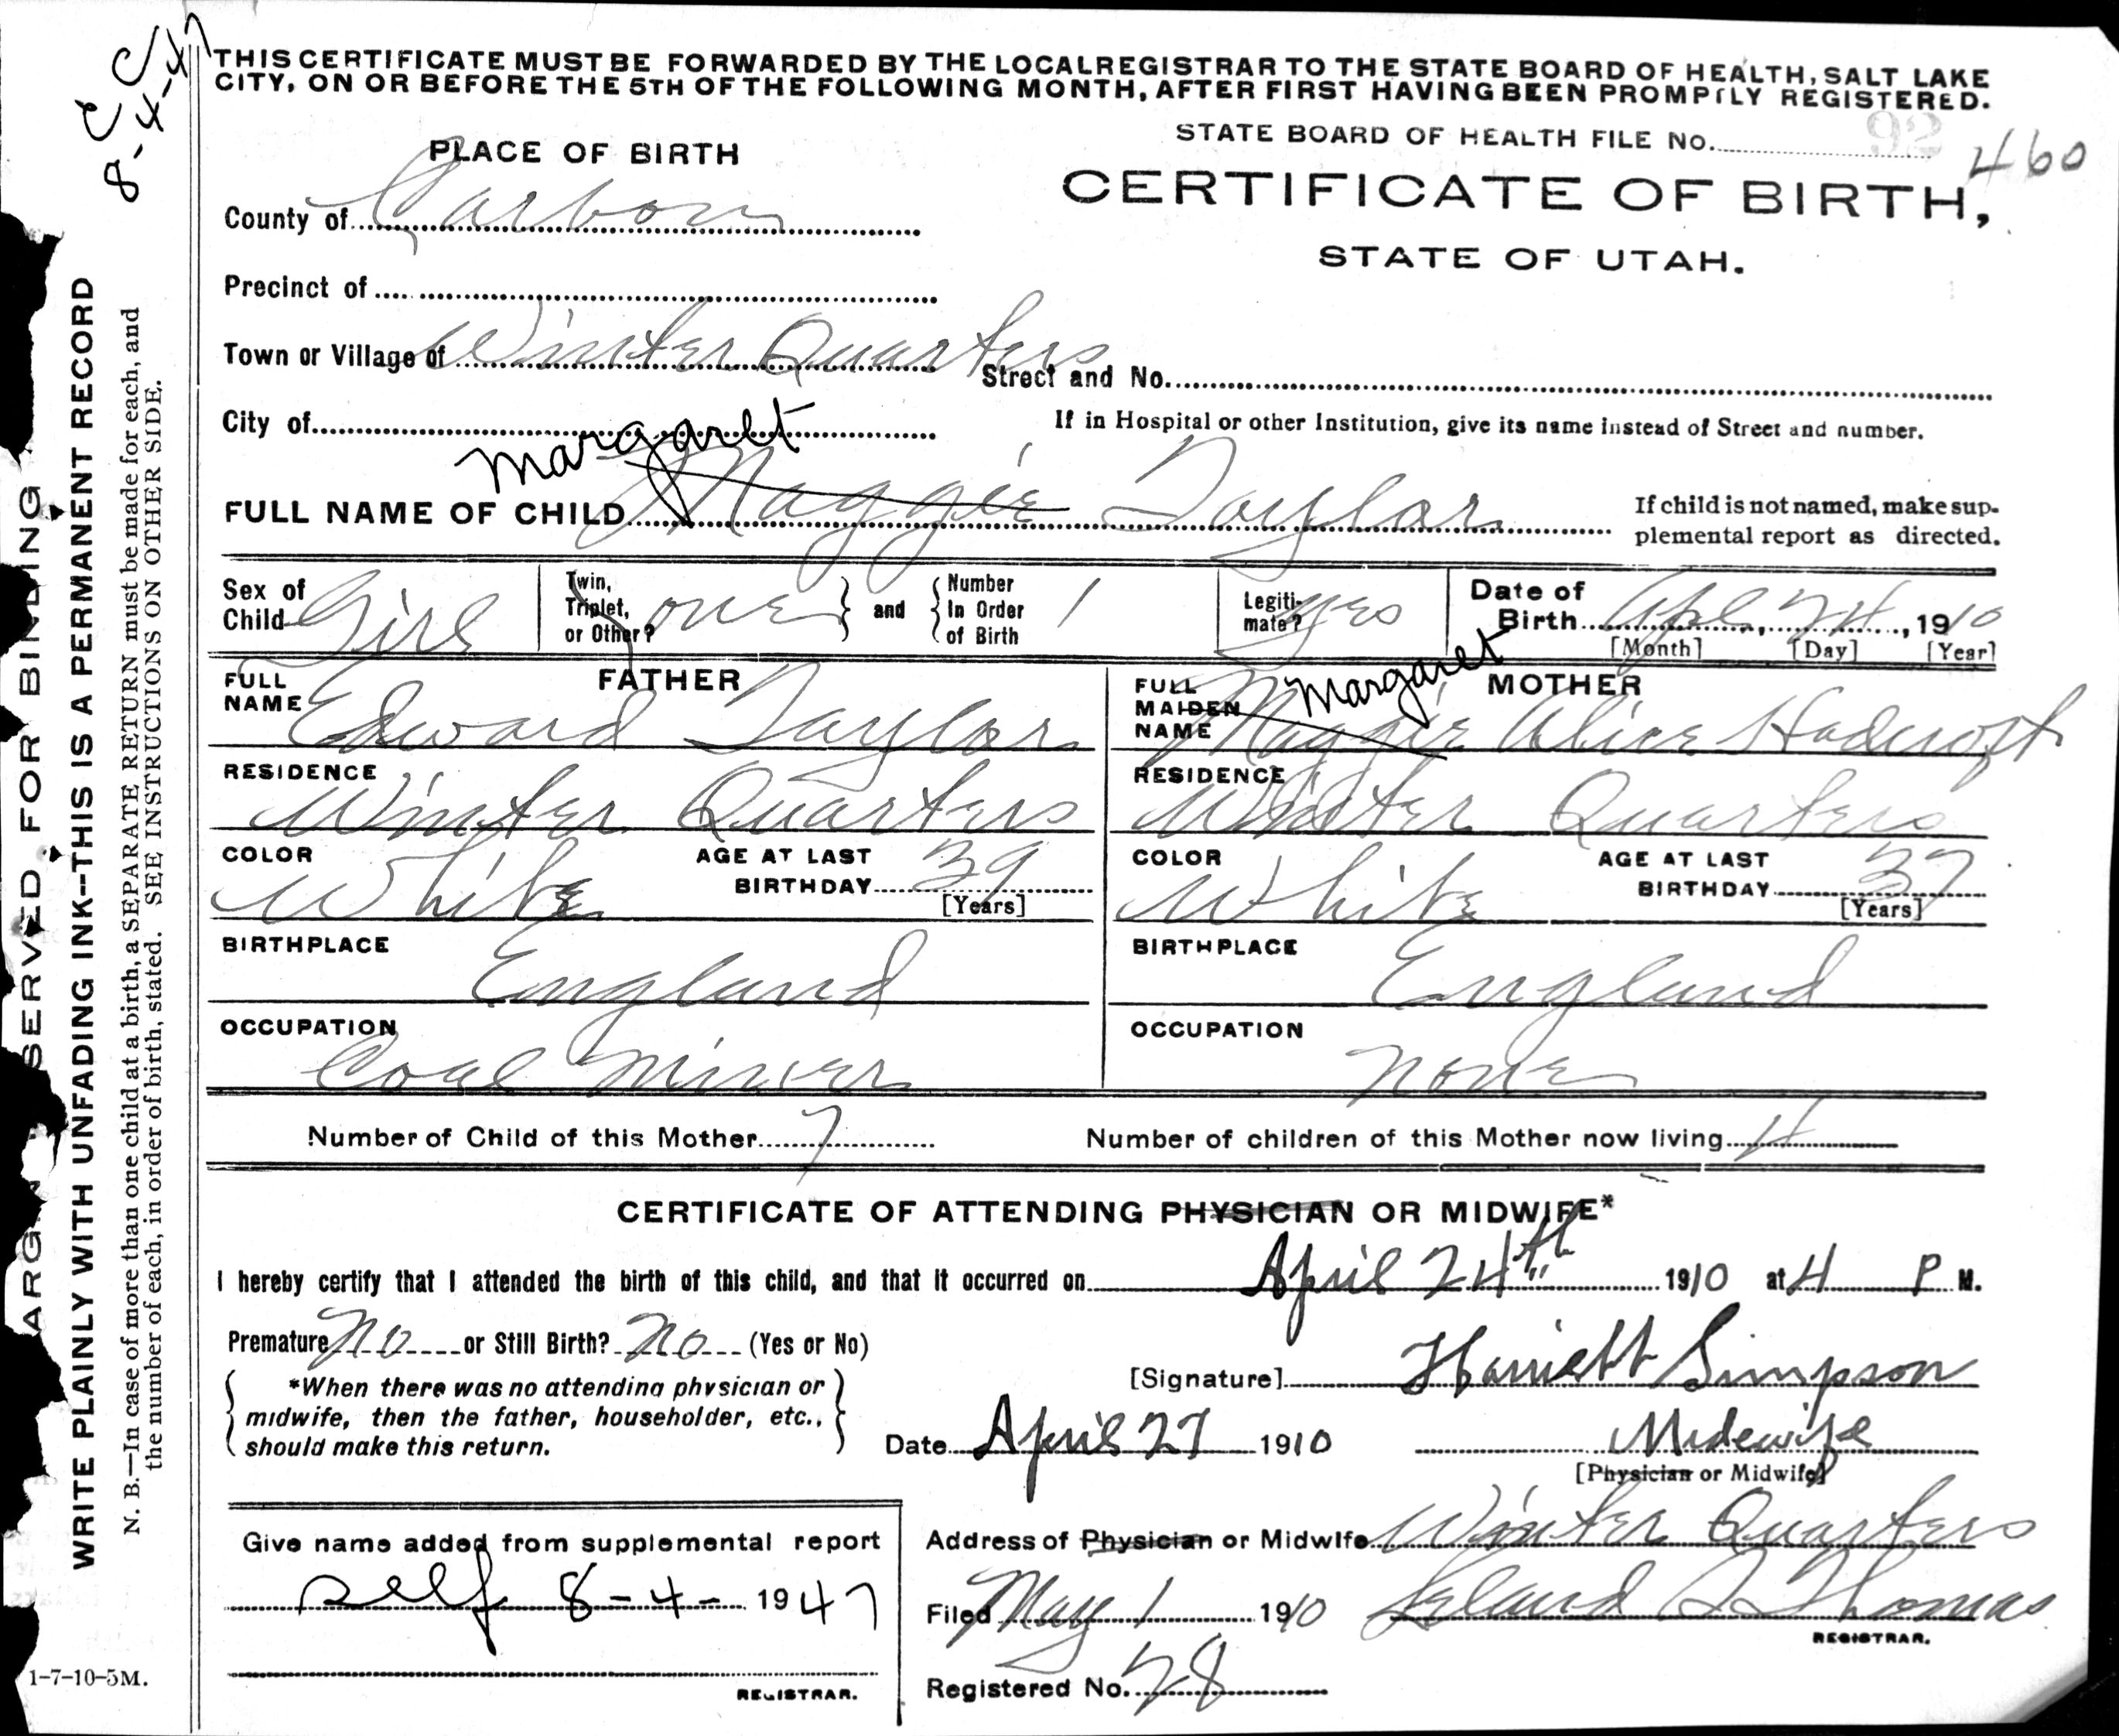 E C
8-4-47
THIS CERTIFICATE MUST BE FORWARDED BY THE LOCAL REGISTRAR TO THE STATE BOARD OF HEALTH, SALT LAKE
CITY, ON OR BEFORE THE 5TH OF THE FOLLOWING MONTH, AFTER FIRST HAVING BEEN PROMPTLY REGISTERED.
STATE BOARD OF HEALTH FILE No. 92 460
CERTIFICATE OF BIRTH,
STATE OF UTAH.
PLACE OF BIRTH
County of Carbon
Precinct of
Town or Village of Winter Quarters
Street and No.
City of
If in Hospital or other Institution, give its name instead of Street and number.
Margaret
FULL NAME OF CHILD Maggie Taylor
If child is not named, make sup-
plemental report as directed.
Sex of Child Girl
Twin, Triplet, or Other? one and Number In Order of Birth 1
Legiti-mate? yes
Date of Birth Apl 24, 1910
[Month] [Day] [Year]
FATHER
FULL NAME Edward Taylor
RESIDENCE Winter Quarters
COLOR White
AGE AT LAST BIRTHDAY 39
[Years]
BIRTHPLACE England
OCCUPATION Coal Miner
MOTHER
Margaret
FULL MAIDEN NAME Maggie Alice Hadcroft
RESIDENCE Winter Quarters
COLOR White
AGE AT LAST BIRTHDAY 37
[Years]
BIRTHPLACE England
OCCUPATION None
Number of Child of this Mother 7
Number of children of this Mother now living 4
CERTIFICATE OF ATTENDING PHYSICIAN OR MIDWIFE*
I hereby certify that I attended the birth of this child, and that it occurred on April 24th 1910 at 4 P M.
Premature No or Still Birth? No (Yes or No)
*When there was no attending physician or
midwife, then the father, householder, etc.,
should make this return.
[Signature] Harriett Simpson
Date April 27 1910
Midewife
[Physician or Midwife]
Give name added from supplemental report
self 8-4- 1947
REGISTRAR.
Address of Physician or Midwife Winter Quarters
Filed May 1 1910 Leland S Thomas
REGISTRAR.
Registered No. 28
SERVED FOR BINDING
WRITE PLAINLY WITH UNFADING INK--THIS IS A PERMANENT RECORD
N. B.—In case of more than one child at a birth, a SEPARATE RETURN must be made for each, and
the number of each, in order of birth, stated. SEE INSTRUCTIONS ON OTHER SIDE.
1-7-10-5M.